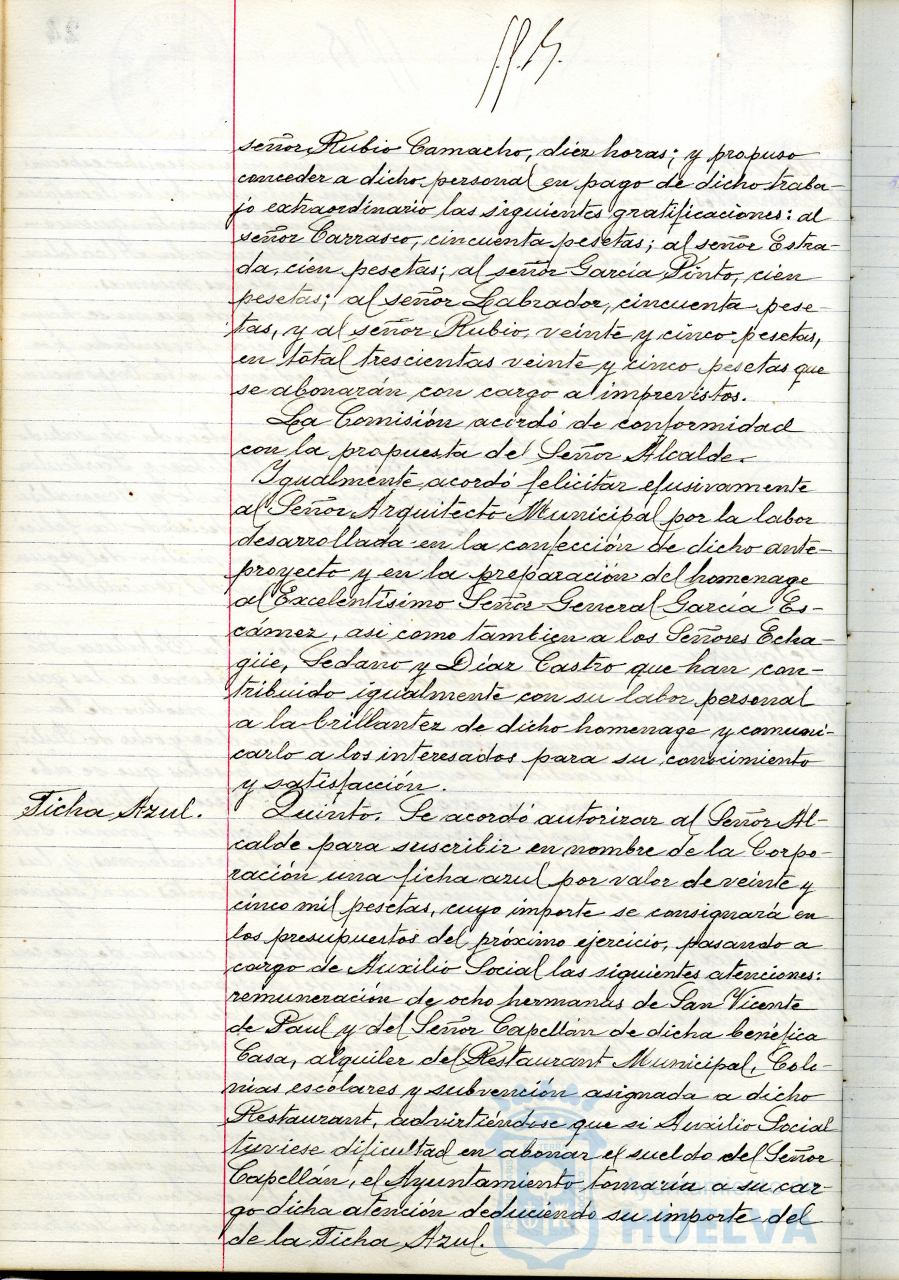 señor Rubio Camacho, diez horas; y propuso
conceder a dicho personal en pago de dicho traba-
jo extraordinario las siguientes gratificaciones: al
señor Carrasco, cincuenta pesetas; al señor Estra-
da, cien pesetas; al señor García Pinto, cien
pesetas; al señor Labrador, cincuenta pese-
tas, y al señor Rubio, veinte y cinco pesetas,
en total trescientas veinte y cinco pesetas que
se abonarán con cargo a imprevistos.
La Comisión acordó de conformidad
con la propuesta del Señor Alcalde.
Igualmente acordó felicitar efusivamente
al Señor Arquitecto Municipal por la labor
desarrollada en la confección de dicho ante-
proyecto y en la preparación del homenage
al Excelentísimo Señor General García Es-
cámez, asi como tambien a los Señores Echa-
güe, Sedano y Díaz Castro que han con-
tribuido igualmente con su labor personal
a la brillantez de dicho homenage y comuni-
carlo a los interesados para su conocimiento
y satisfacción.
Ficha Azul.
Quinto. Se acordó autorizar al Señor Al-
calde para suscribir en nombre de la Corpo-
ración una ficha azul por valor de veinte y
cinco mil pesetas, cuyo importe se consignará en
los presupuestos del próximo ejercicio, pasando a
cargo de Auxilio Social las siguientes atenciones:
remuneración de ocho hermanas de San Vicente
de Paul y del Señor Capellán de dicha benéfica
Casa, alquiler del Restaurant Municipal, Colo-
nias escolares y subvención asignada a dicho
Restaurant, advirtiéndose que si Auxilio Social
tuviese dificultad en abonar el sueldo del Señor
Capellán, el Ayuntamiento tomaría a su car-
go dicha atención deduciendo su importe del
de la Ficha Azul.
Ayuntamiento
HUELVA